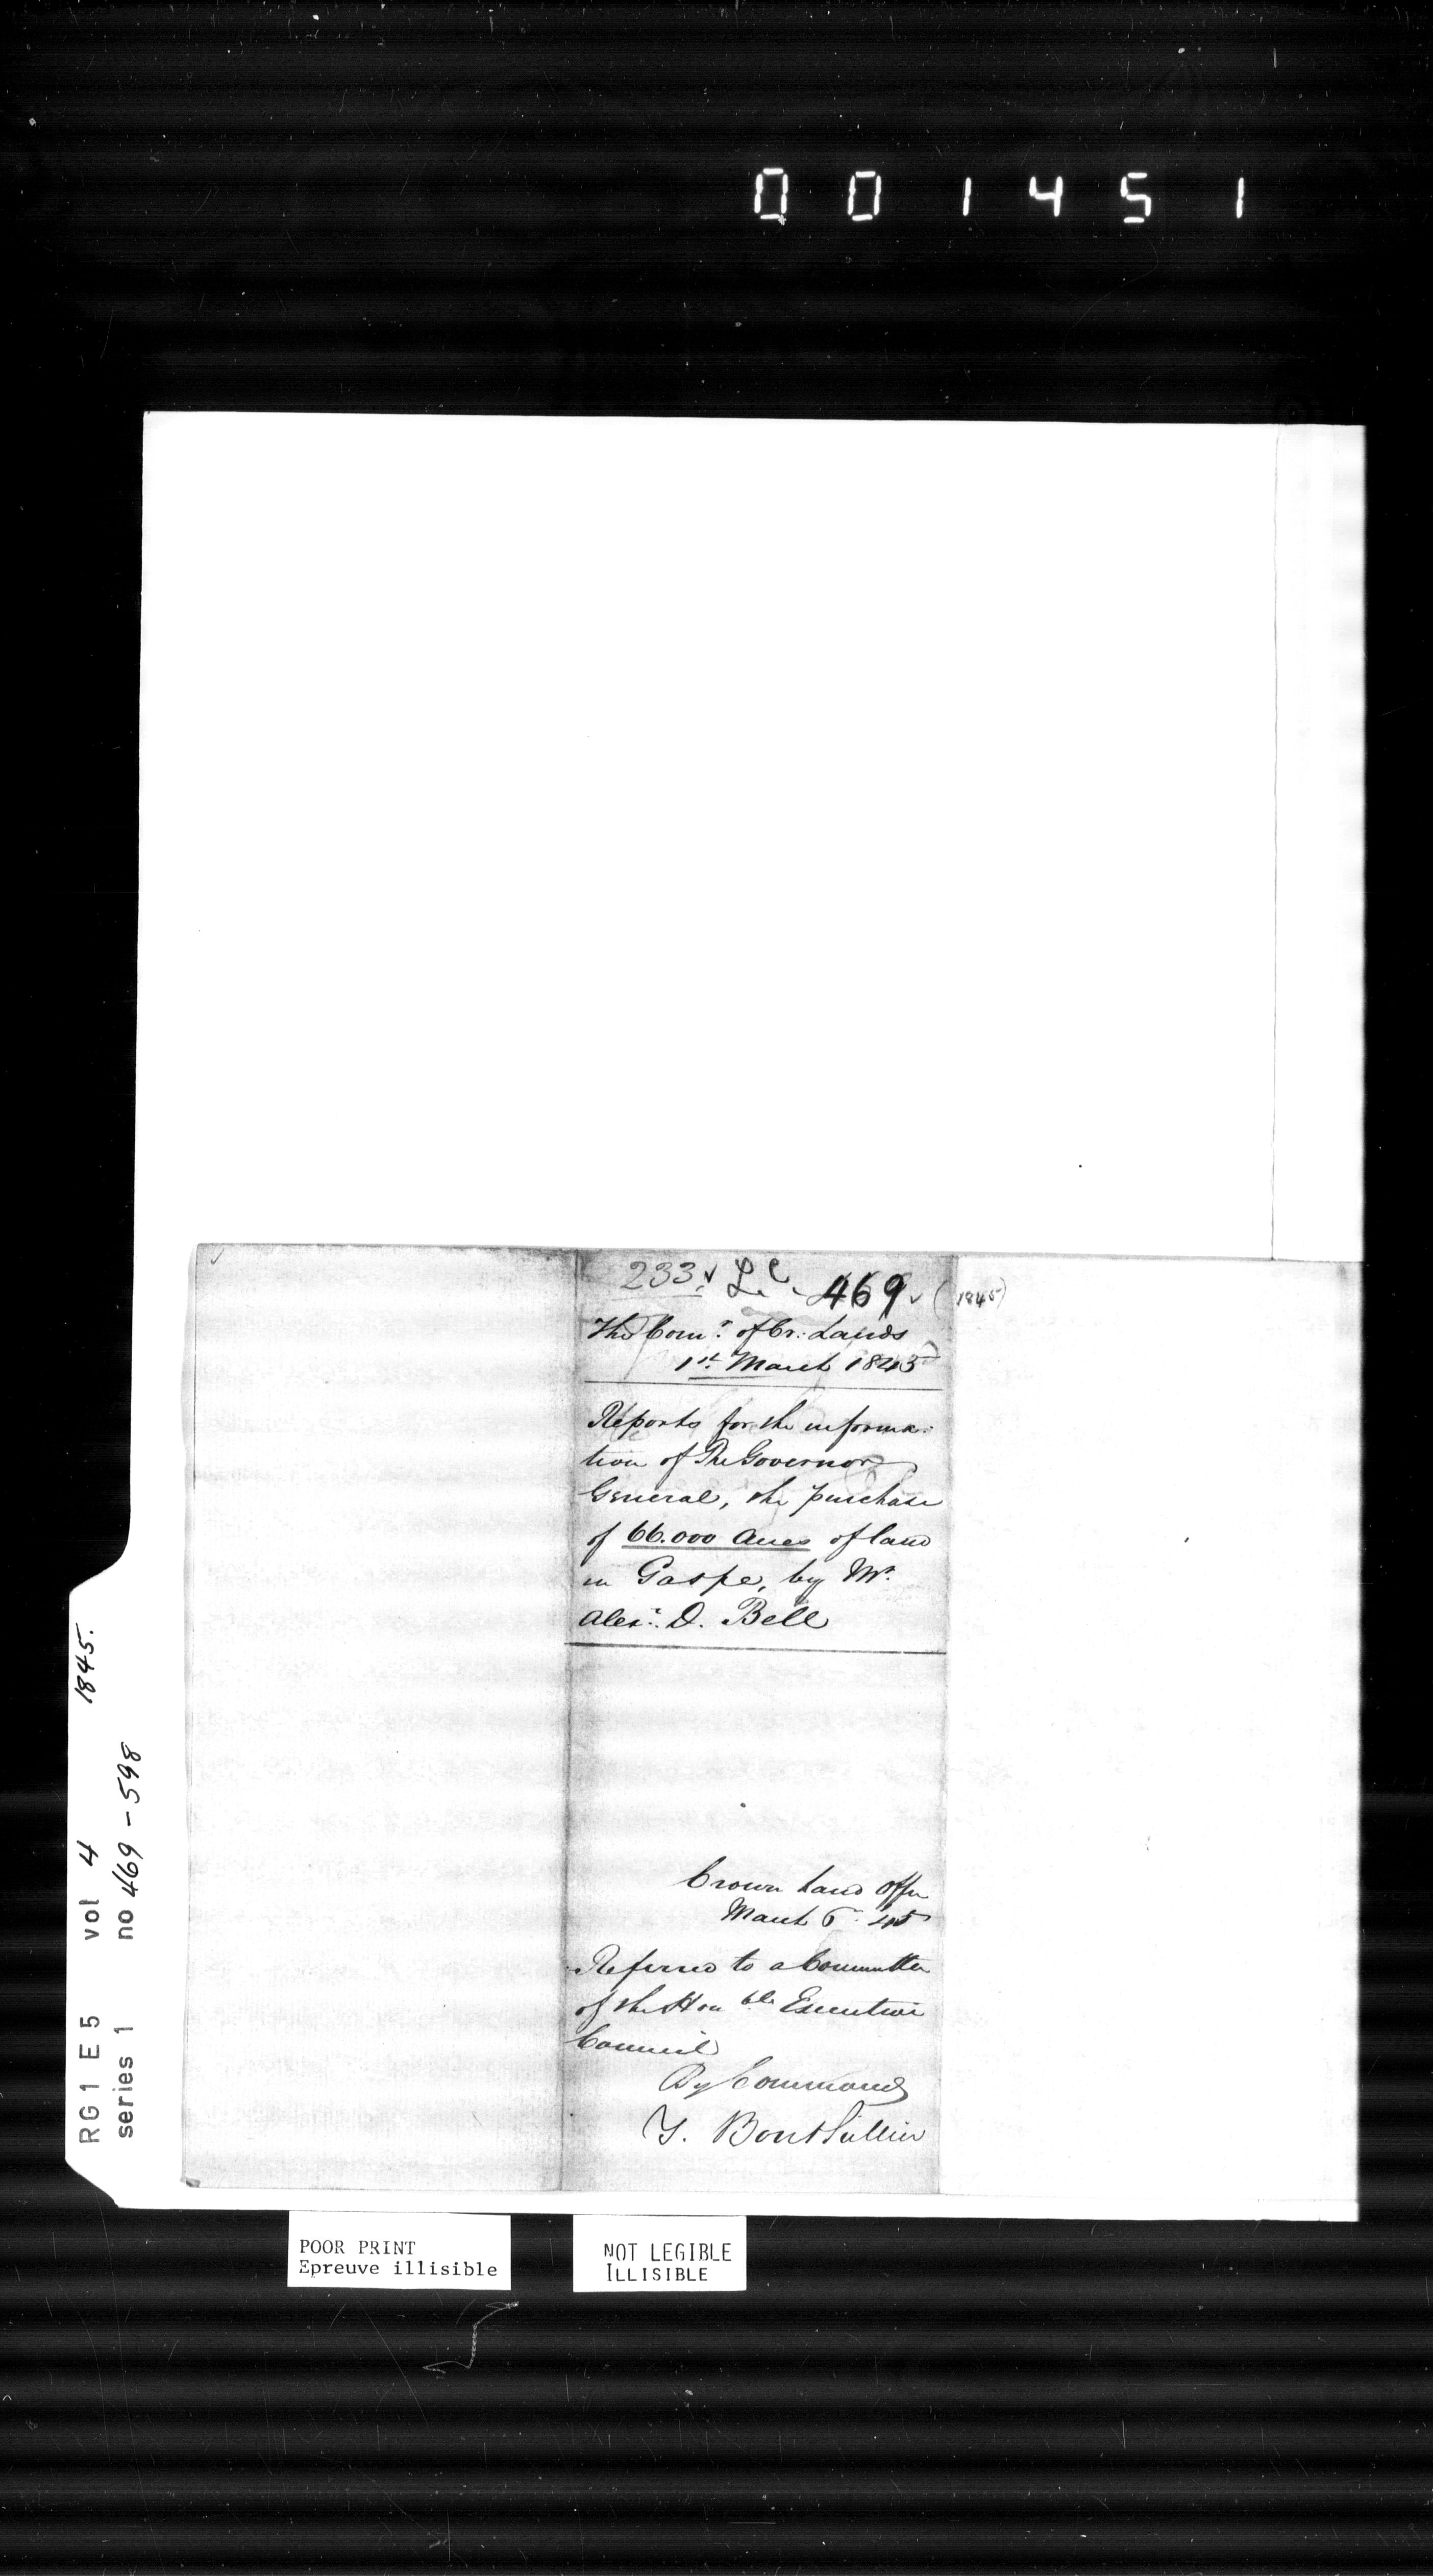 001451
233 L.C. 469 (1845)
The Comr. of Cr. Lands
1st. March 1845
Reports for the informa-
tion of The Governor
General, the purchase
of 66.000 Acres of land
in Gaspe, by Mr.
Alexr. D. Bell
Crown Land Offe
March 6. 45
Referred to a Committee
of the Honble Executive
Council
By Command
T. Bouthillier
RG1 E5 vol 4 1845.
series 1 no 469 - 598
POOR PRINT
Epreuve illisible
NOT LEGIBLE
ILLISIBLE